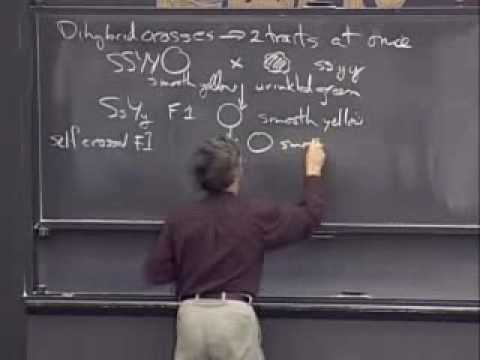 Dihybrid crosses → 2 traits at once
SSYY × ssyy
smooth yellow wrinkled green
SsYy F1 smooth yellow
self crossed F1 smoo